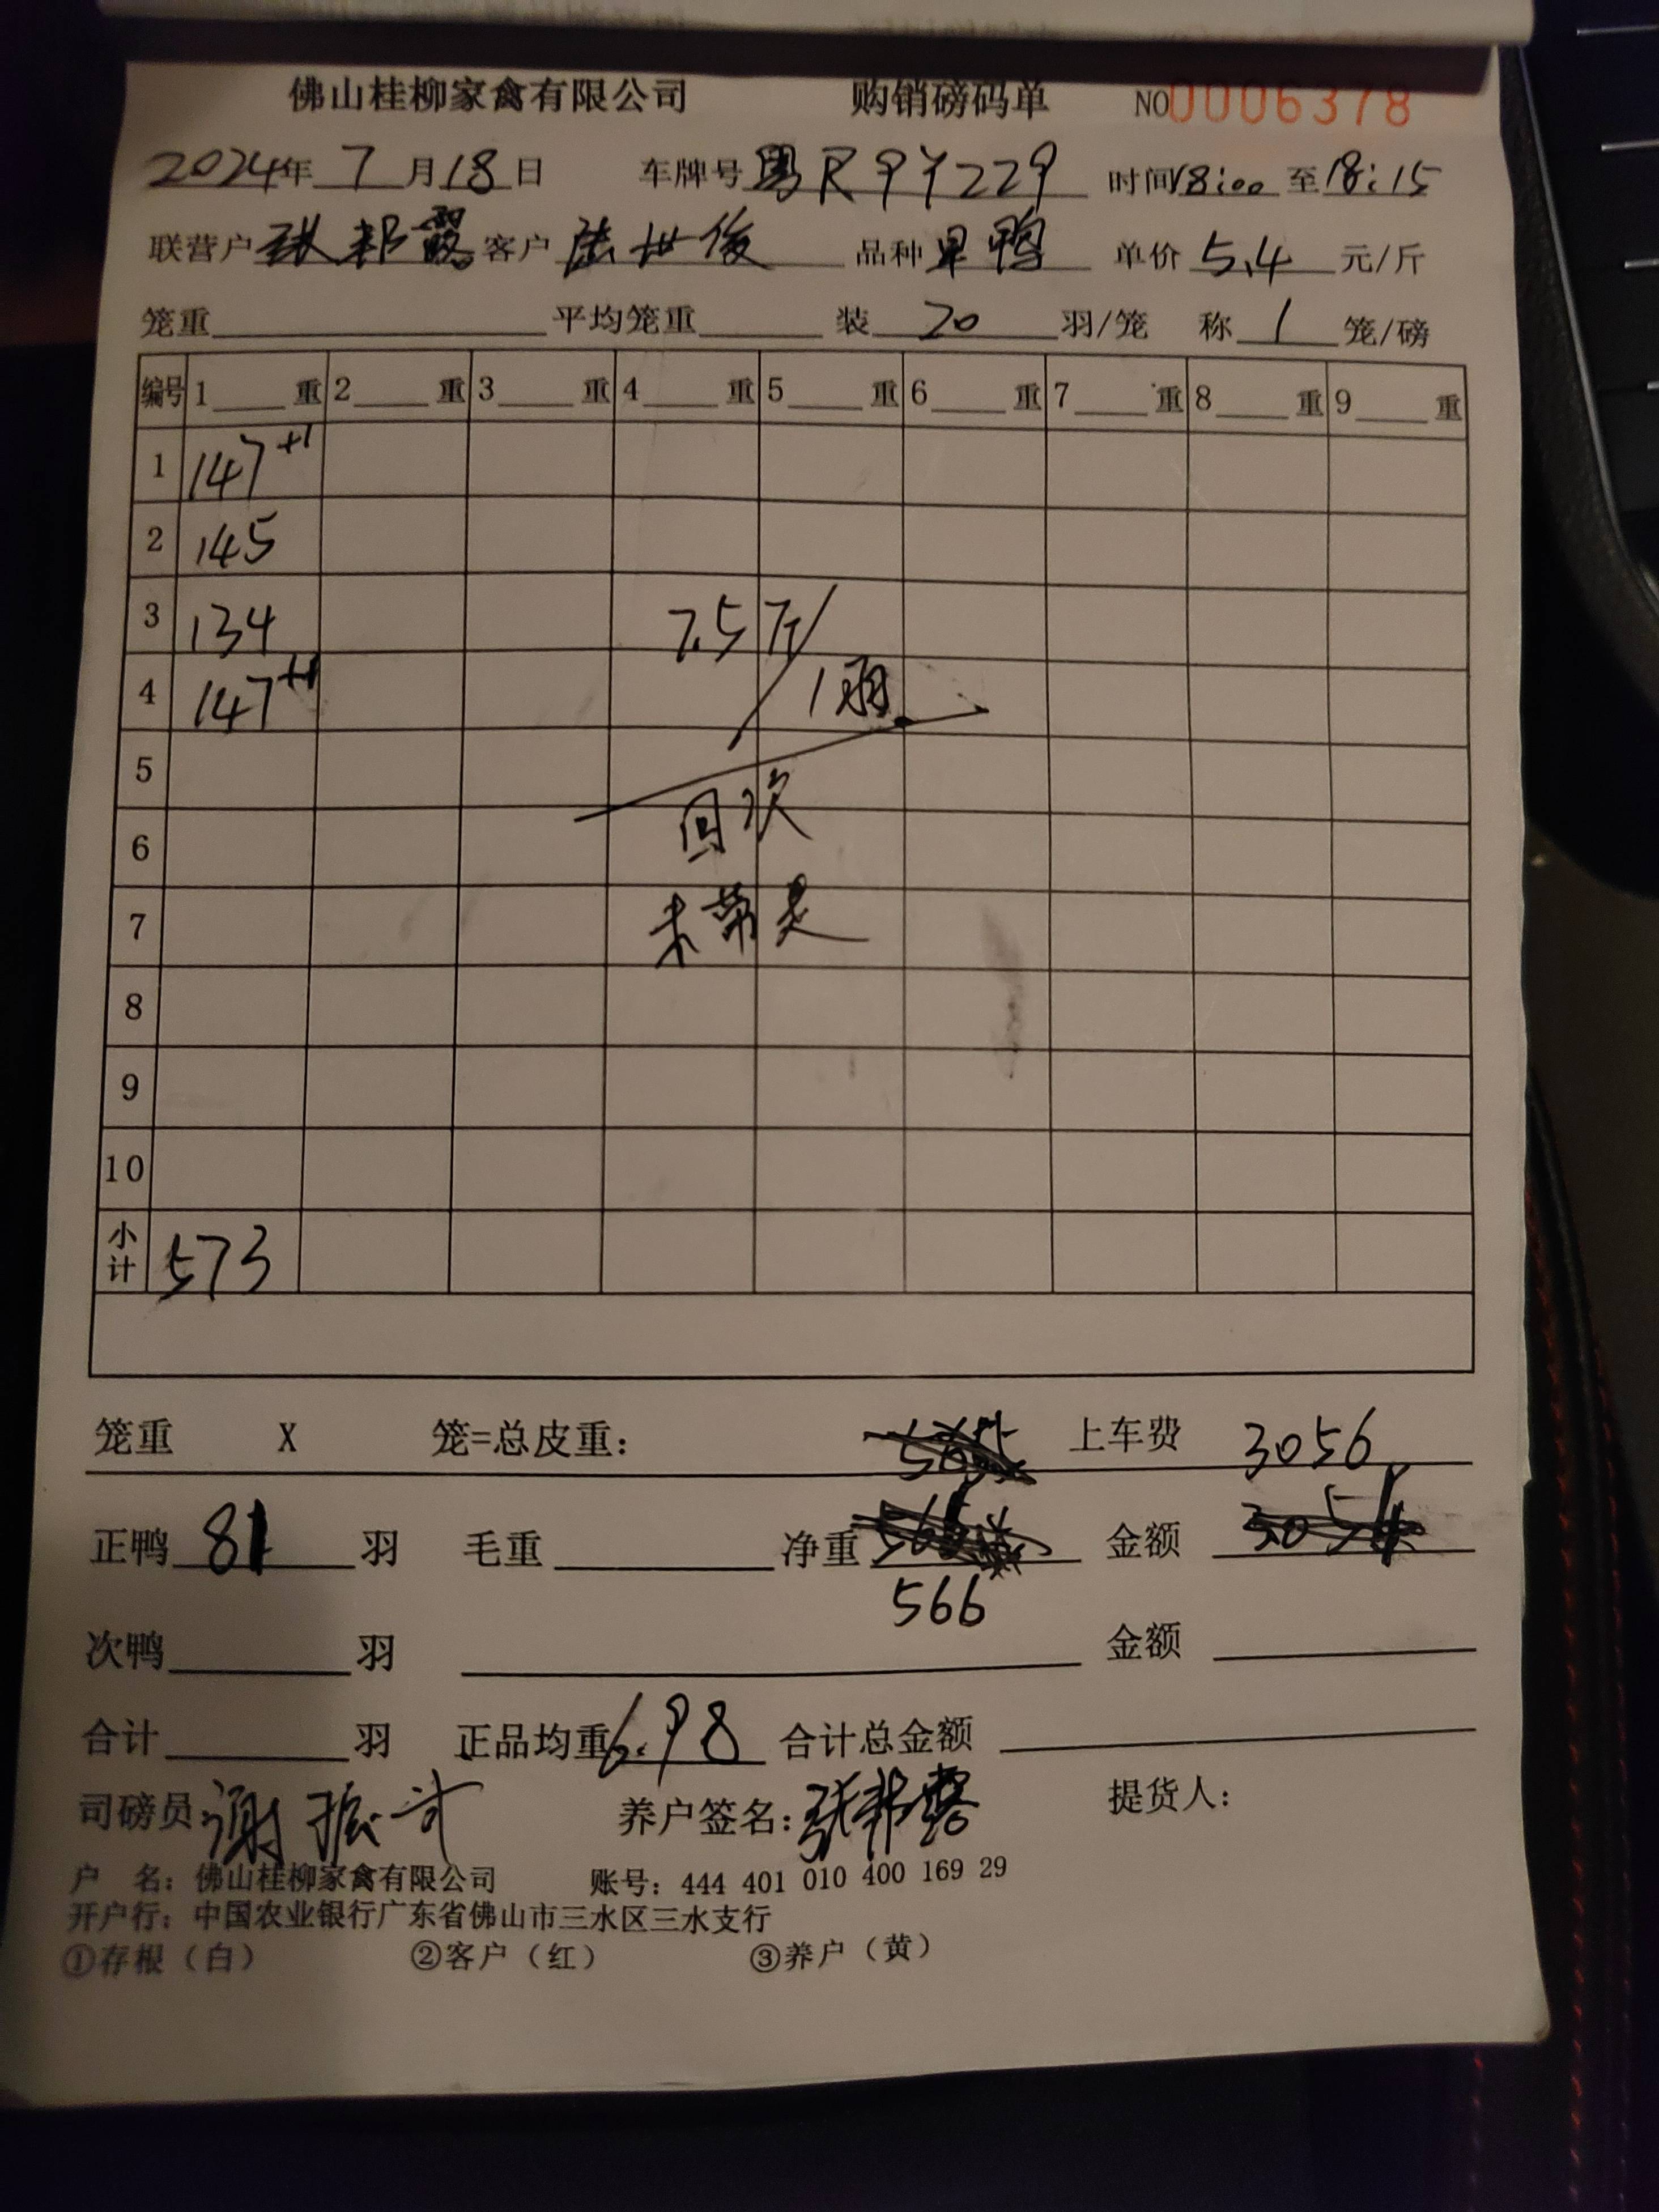 佛山桂柳家禽有限公司 购销磅码单 NO0006378
2024年 7 月 18 日 车牌号 粤R9Y229 时间 18:00 至 18:15
联营户 张邦露 客户 陆世俊 品种 旦鸭 单价 5.4 元/斤
笼重 平均笼重 装 20 羽/笼 称 1 笼/磅
编号 1 重 2 重 3 重 4 重 5 重 6 重 7 重 8 重 9 重
1 147+1
2 145
3 134 7.5斤/
4 147+1 1两
5
6 次
7 未带
8
9
10
小计 573
笼重 X 笼=总皮重: 上车费 3056
正鸭 81 羽 毛重 净重 金额
566
次鸭 羽 金额
合计 羽 正品均重 6.98 合计总金额
司磅员: 谢振 养户签名: 张邦露 提货人:
户 名: 佛山桂柳家禽有限公司 账号: 444 401 010 400 169 29
开户行: 中国农业银行广东省佛山市三水区三水支行
①存根（白） ②客户（红） ③养户（黄）